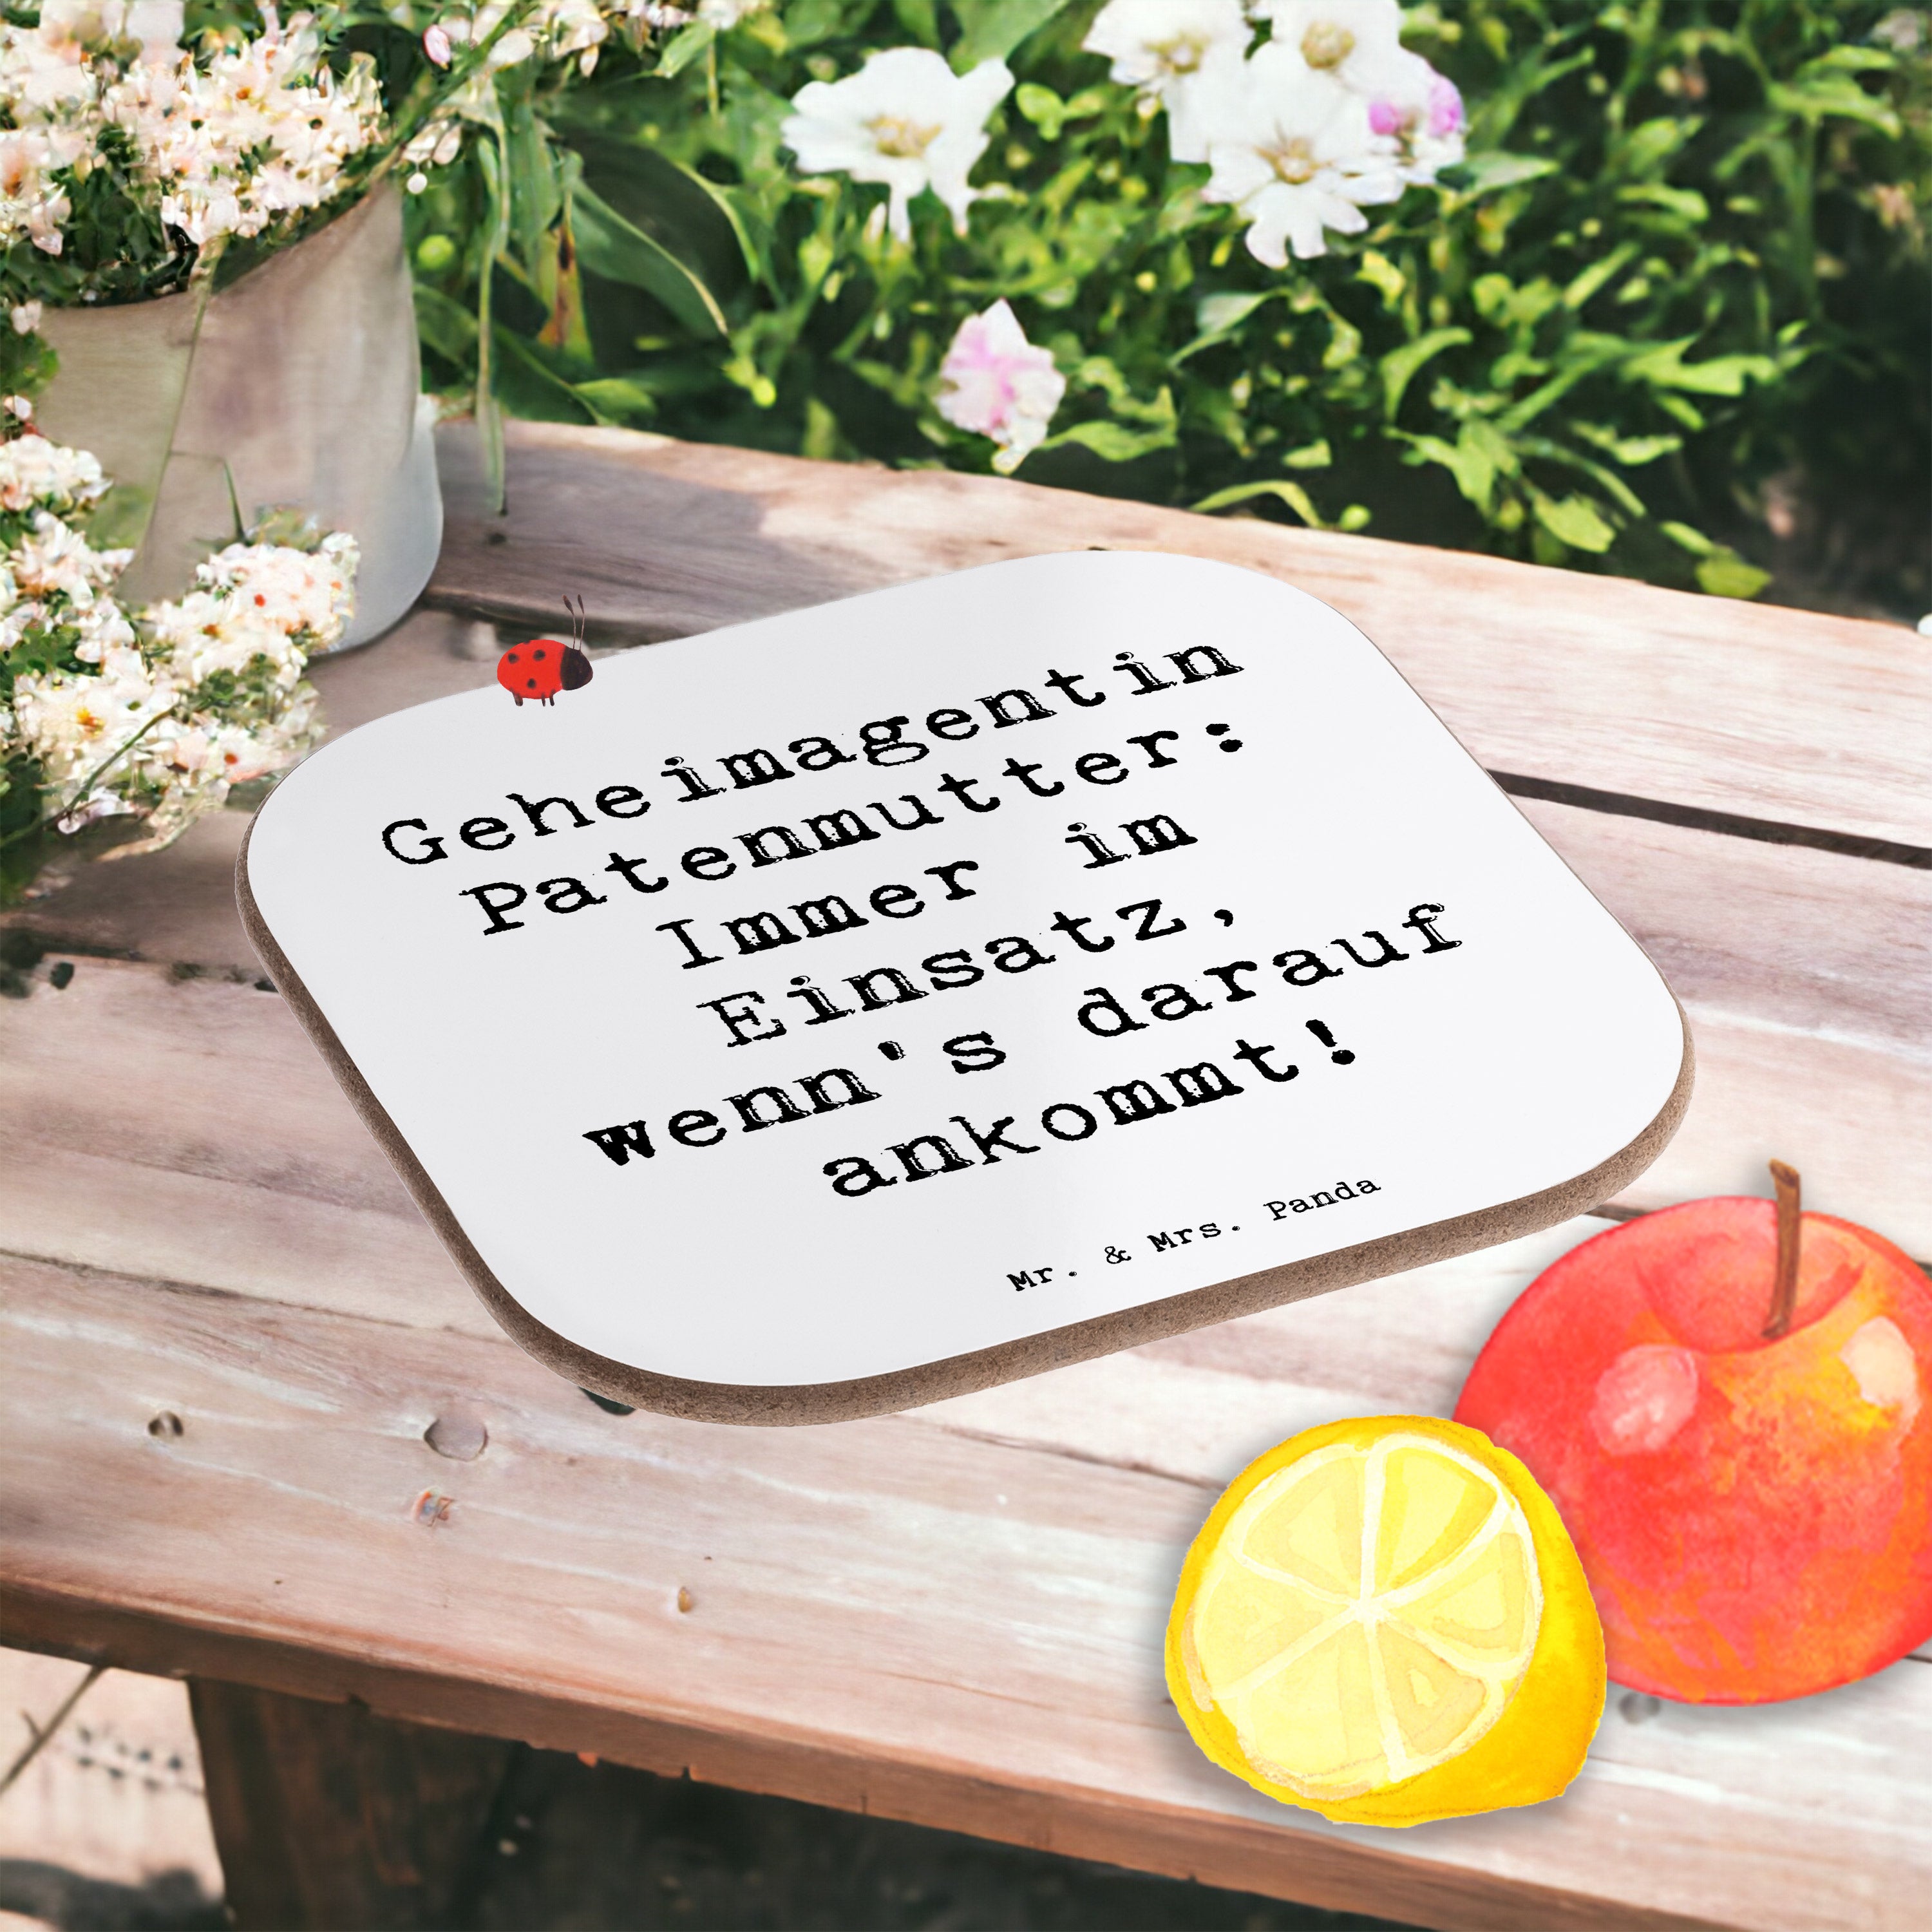 Geheimagentin
Patenmutter:
Immer im
Einsatz,
wenn's darauf
ankommt!
Mr. & Mrs. Panda